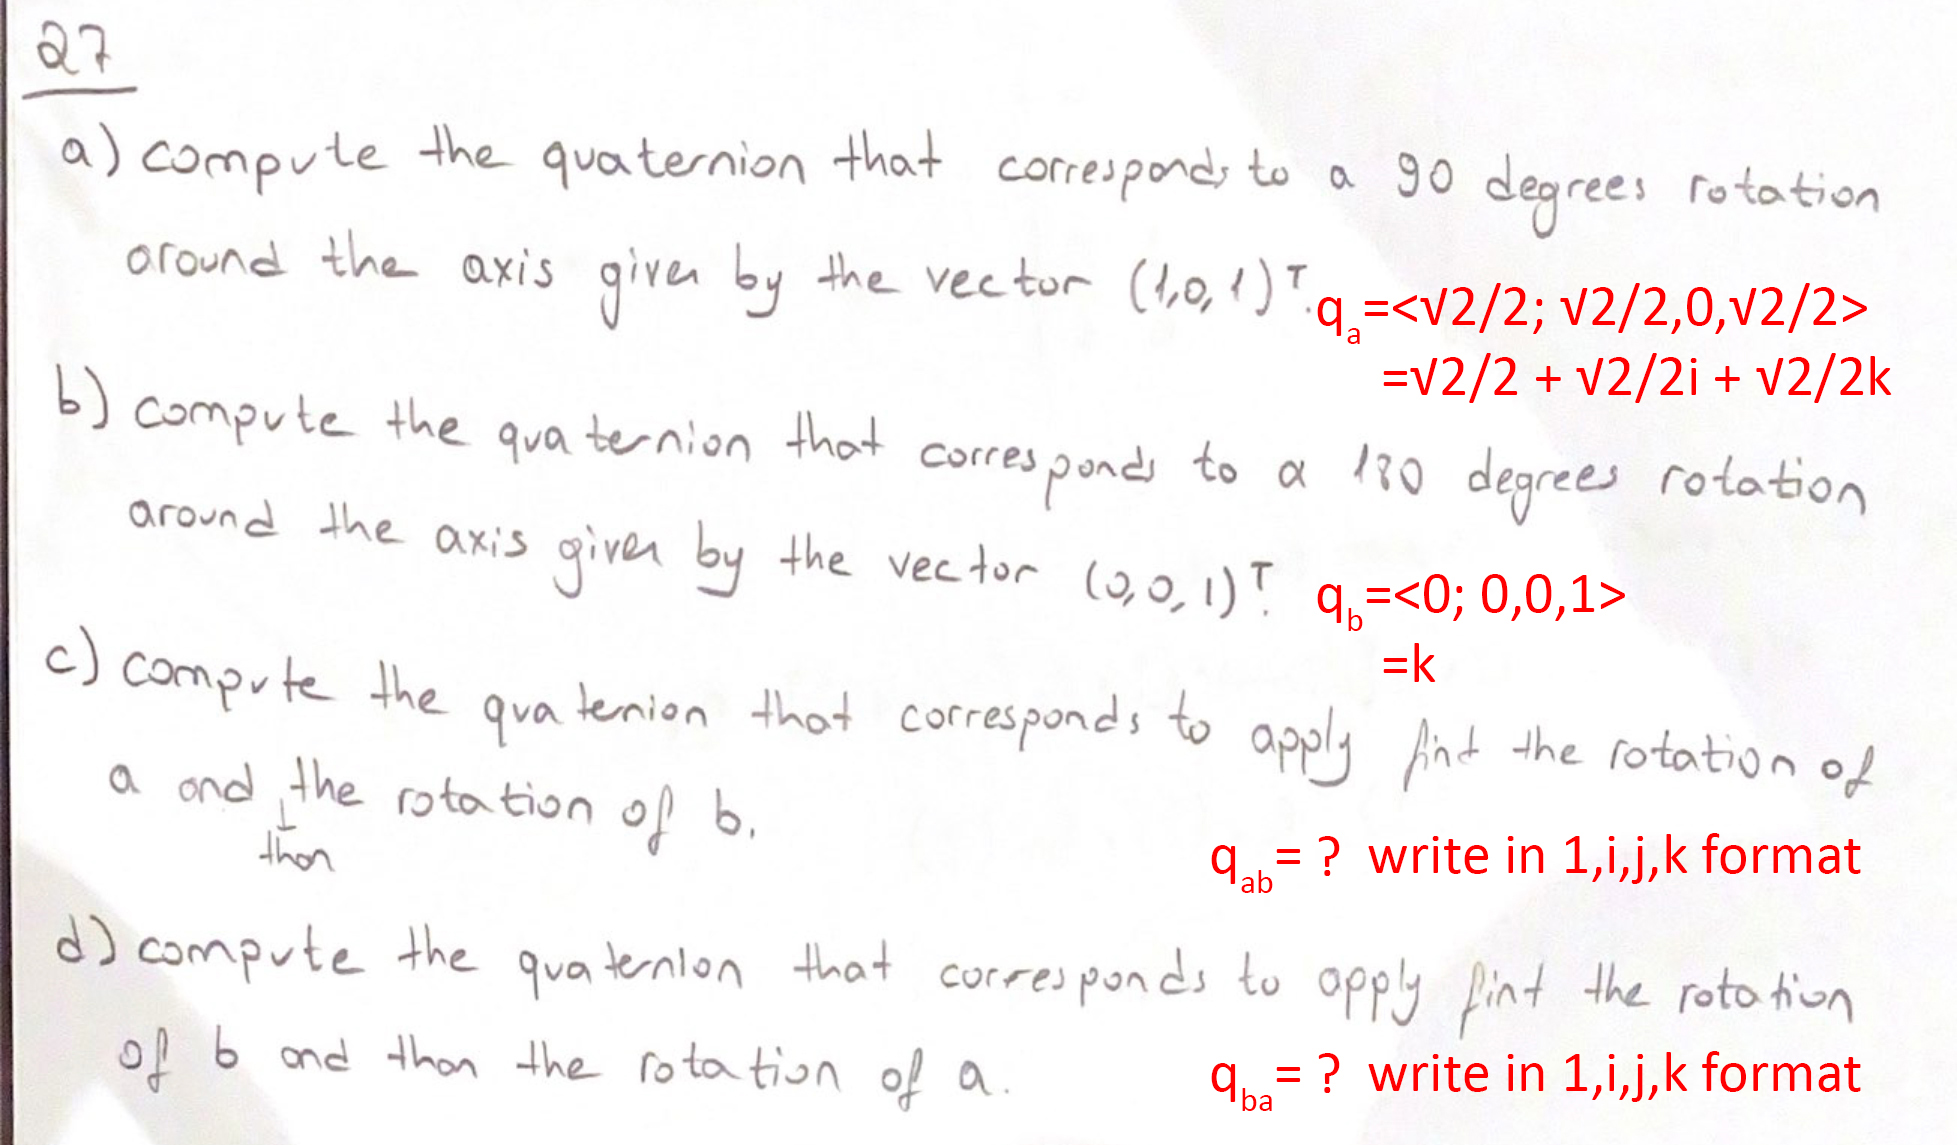 27
a) compute the quaternion that corresponds to a 90 degrees rotation
around the axis given by the vector (1,0,1)ᵀ.
qₐ=<√2/2; √2/2,0,√2/2>
=√2/2 + √2/2i + √2/2k
b) compute the quaternion that corresponds to a 180 degrees rotation
around the axis given by the vector (0,0,1)ᵀ.
q_b=<0; 0,0,1>
=k
c) compute the quaternion that corresponds to apply first the rotation of
a and the rotation of b.
than
q_ab= ? write in 1,i,j,k format
d) compute the quaternion that corresponds to apply first the rotation
of b and than the rotation of a.
q_ba= ? write in 1,i,j,k format